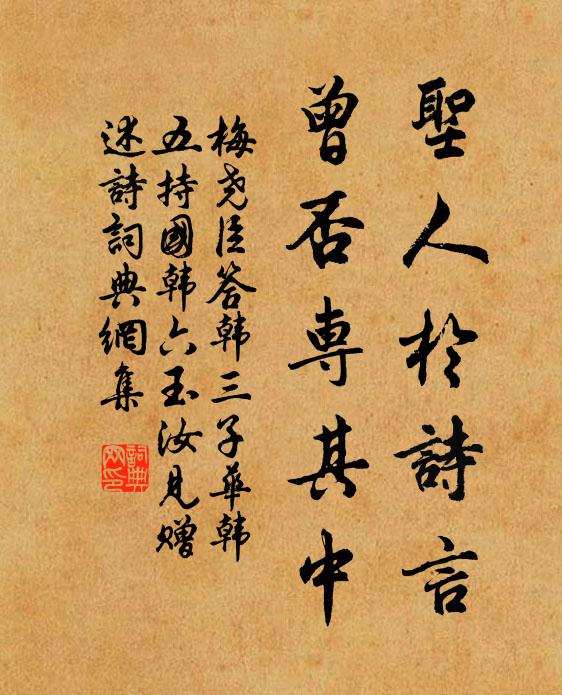 聖人於詩言
曾否専其中
梅尧臣答韩三子華韩
五持國韩六玉汝見贈
述詩詞典網集
詞典
网印